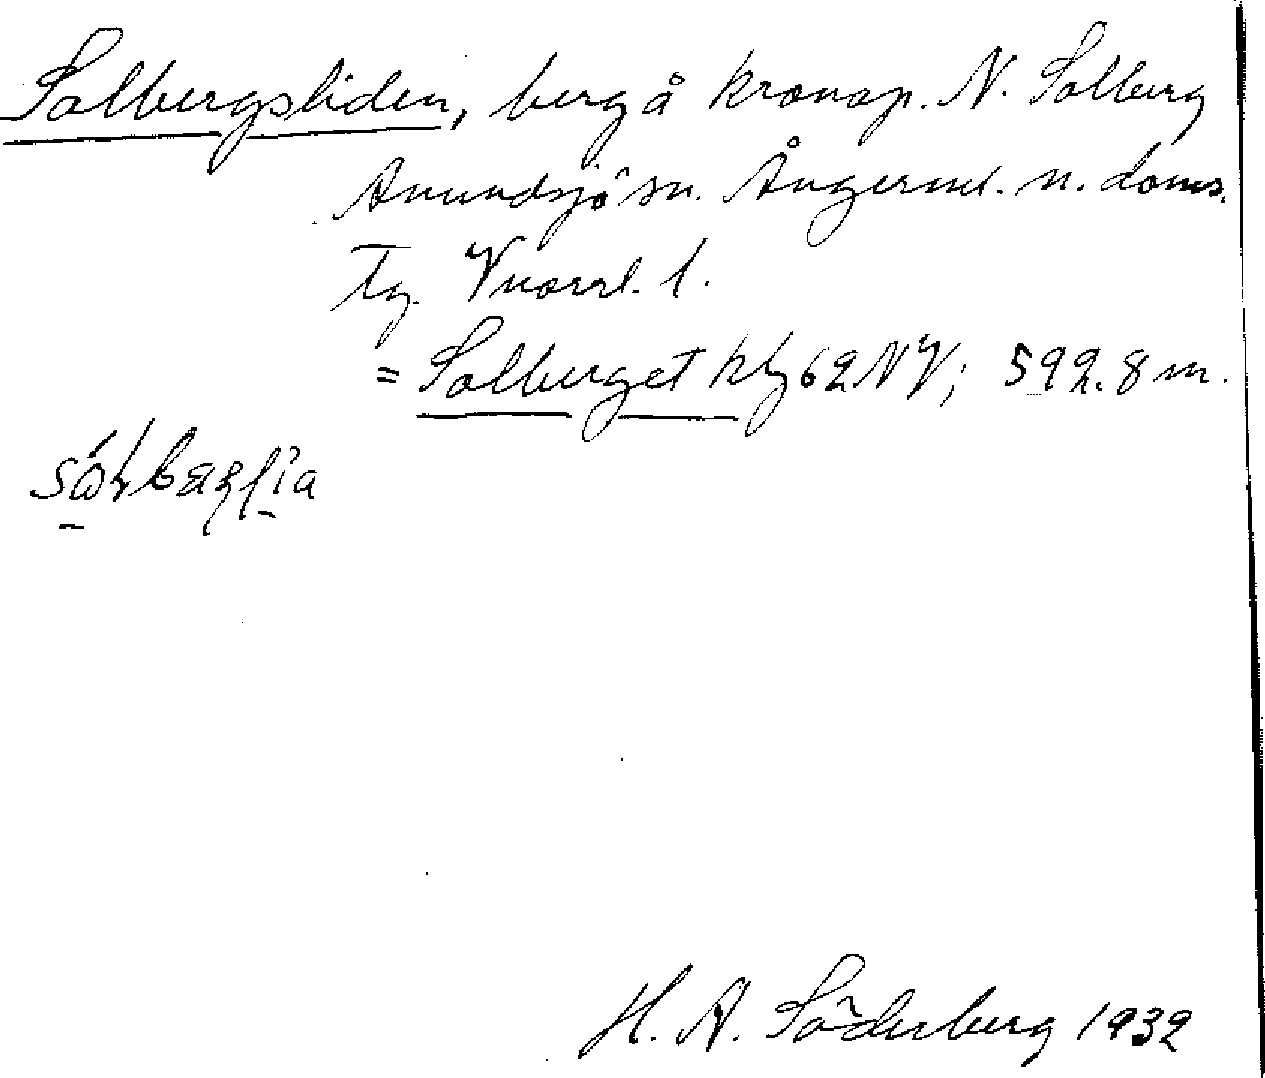 Solbergsliden, berg å kronop. N. Solberg
Anundsjö sn. Ångerml. n. doms.
Tg. Vnorrl. l.
= Solberget kbl 62 NV; 592.8 m.
H. A. Söderberg 1932